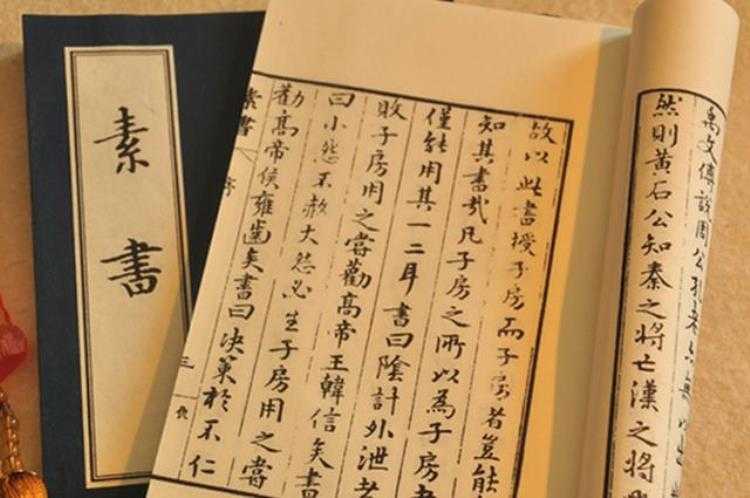 禹文傅說周公孔老亦無以出
然則黃石公知秦之將亡漢之將
故以此書授子房而子房者豈能
知其書哉凡子房之所以為子房者
僅能用其一二耳書曰陰計外泄者
敗子房用之嘗勸高帝王韓信矣書
曰小怨不赦大怨必生子房用之嘗
勸高帝侯雍齒矣書曰決策於不仁
素書 序 三
素書